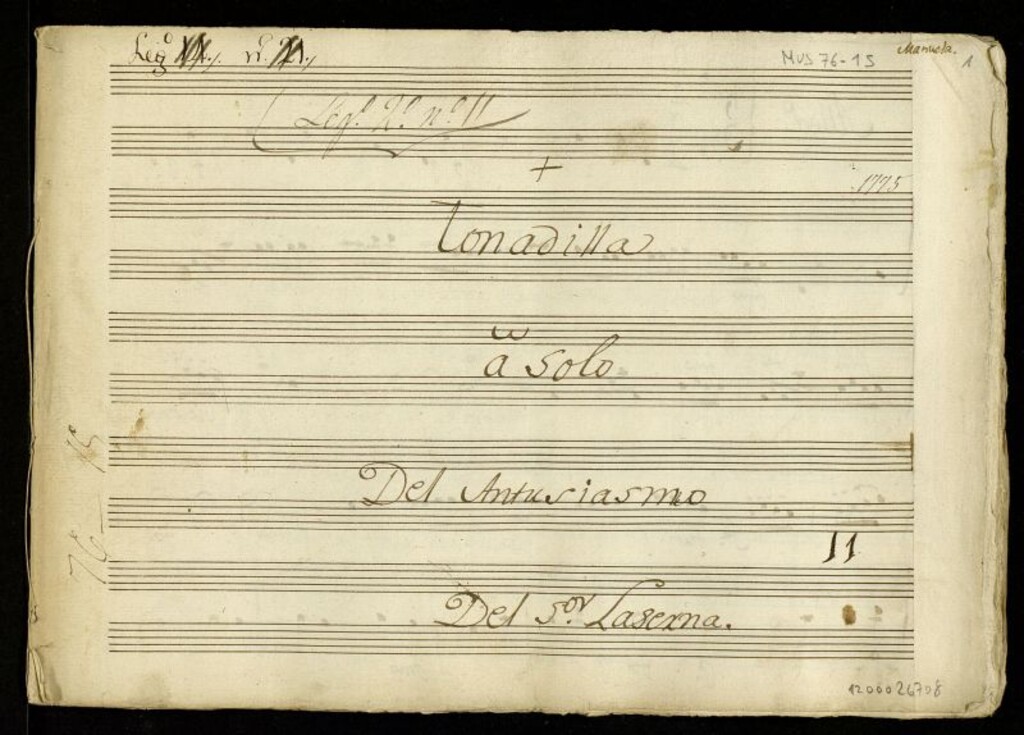 Leg.º nº
MUS 76-15
Manuela.
1
Leg.º 2.º n.º 11
+
1775
Tonadilla
à solo
Del Antusiasmo
76-15
11
Del S.or Laserna.
1200026708